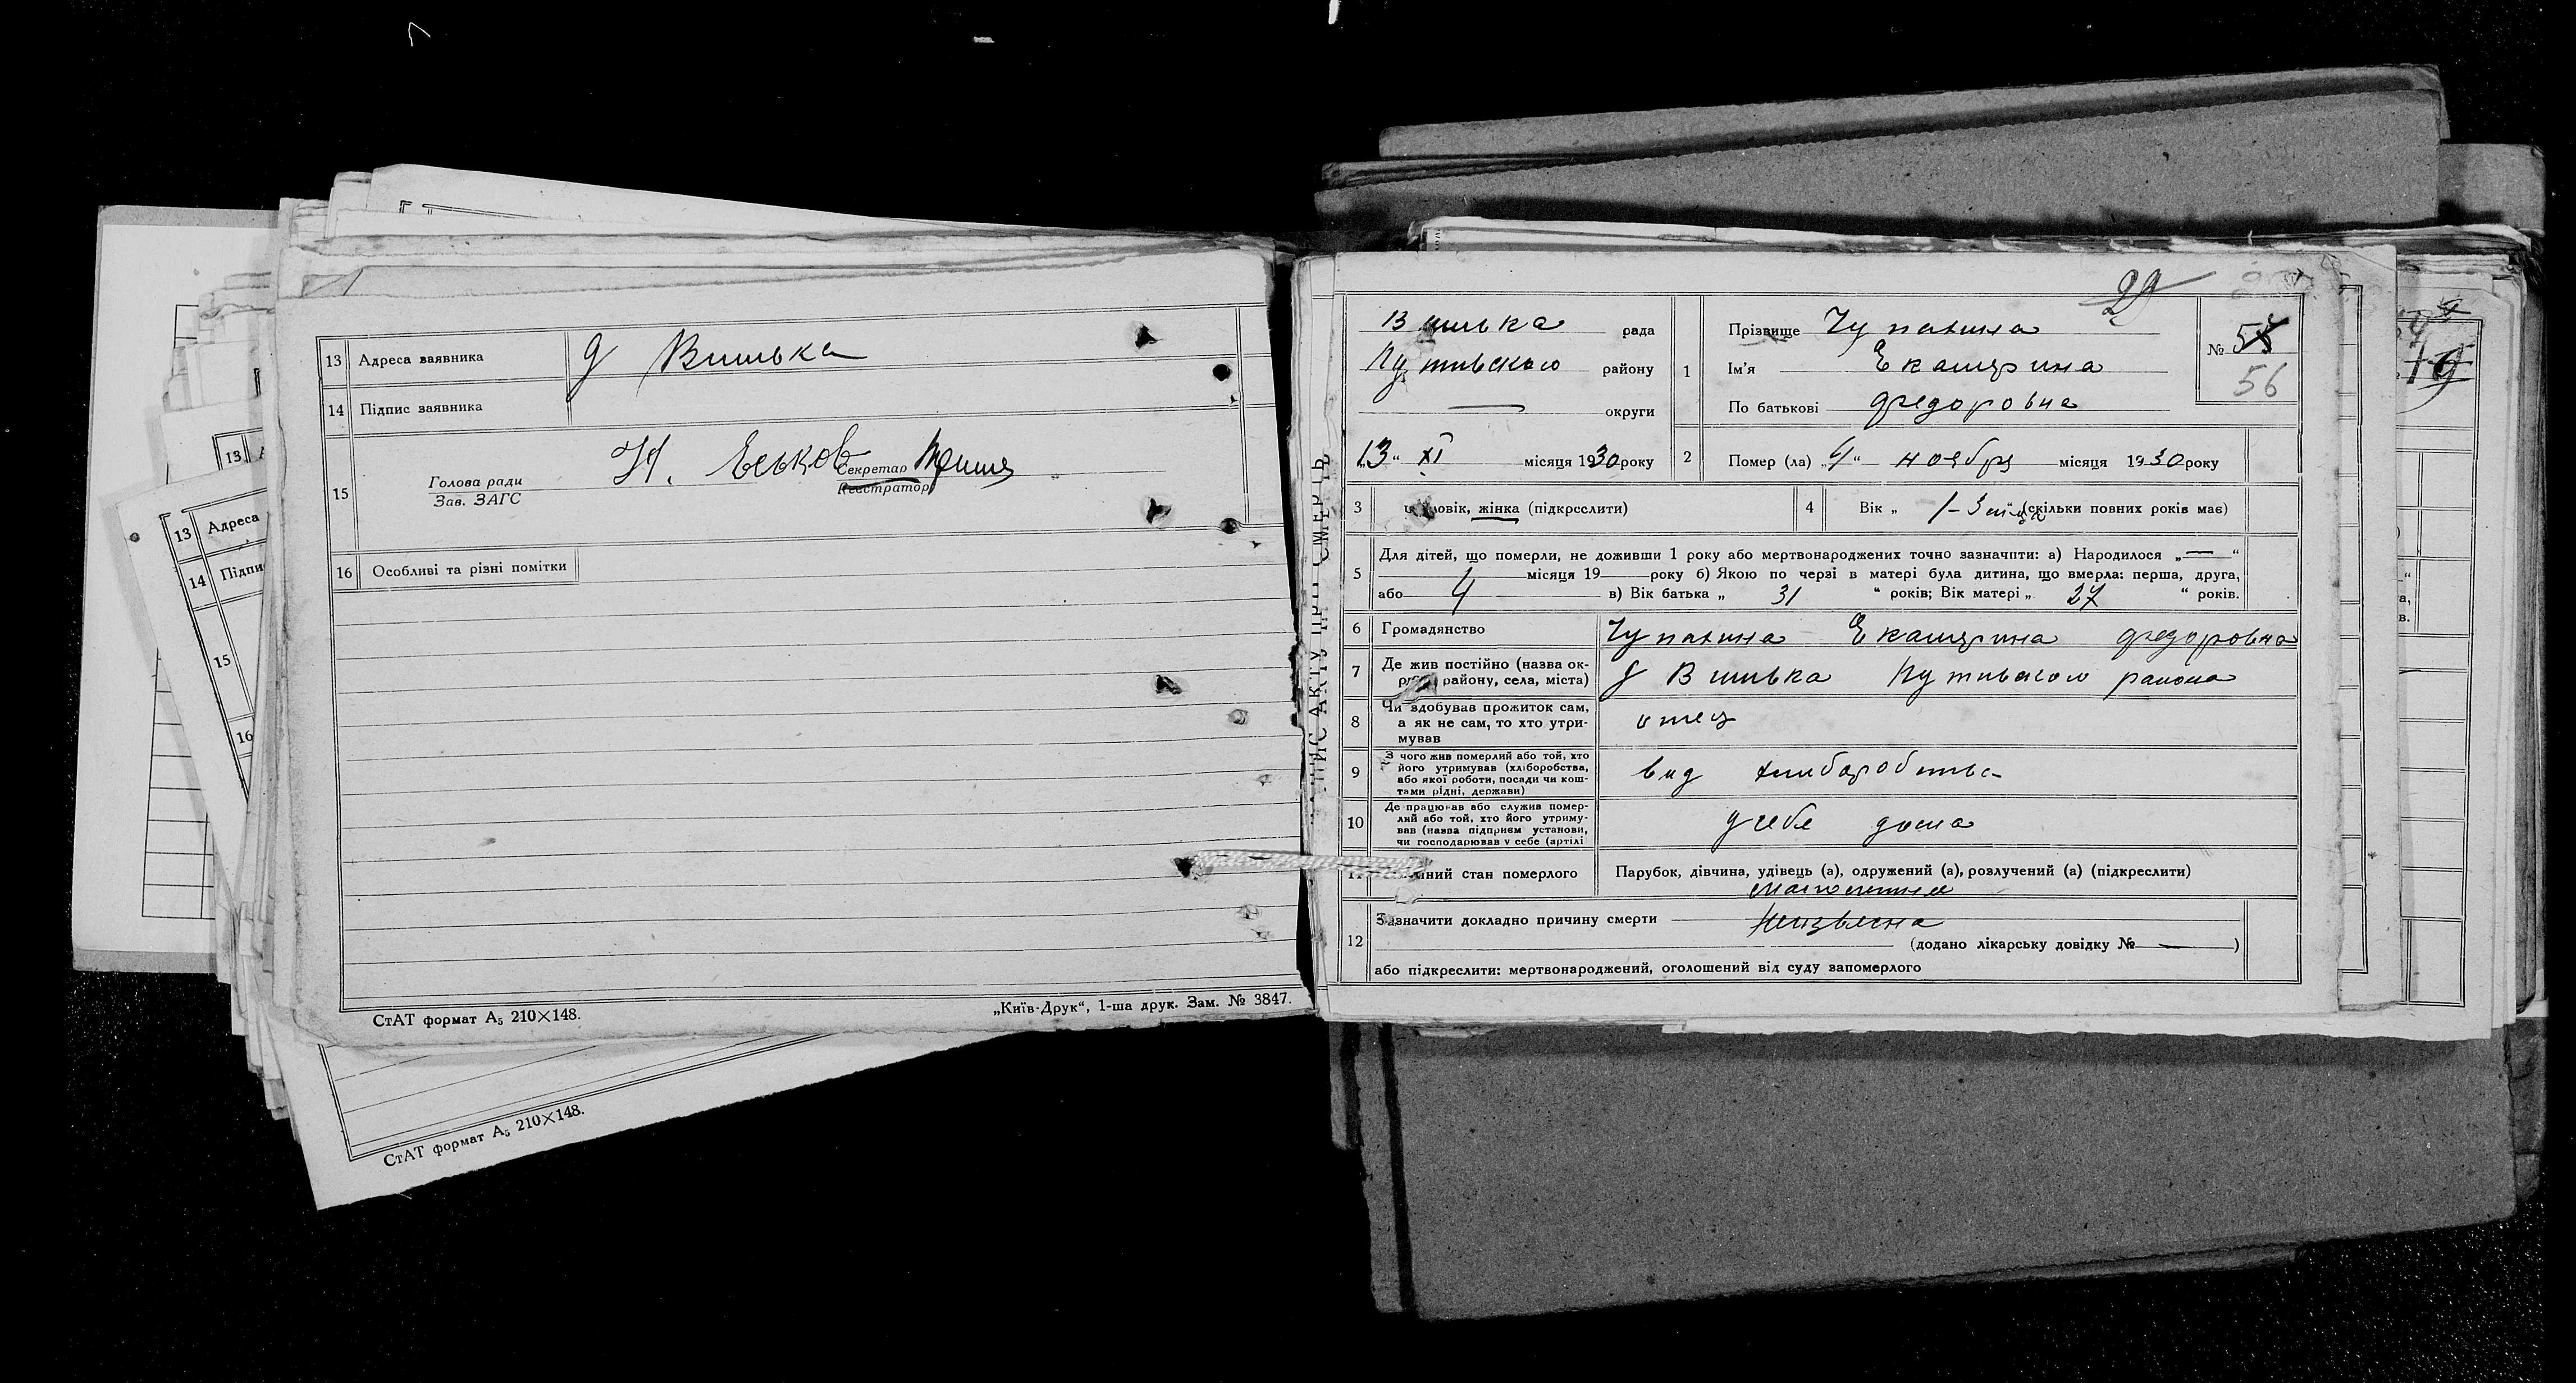 13 Адреса заявника д Вшивка
14 Підпис заявника
15 Голова ради
Зав. ЗАГС
Н. Еськов
Секретар
Реєстратор
16 Особливі та різні помітки
СтАТ формат А₅ 210×148.
„Київ-Друк“, 1-ша друк. Зам. № 3847.
13
13 Адреса
14
15
16
СтАТ формат А₅ 210×148.
ЗАПИС АКТУ ПРО СМЕРТЬ
Вшивка рада
Путивского району
— округи
„13“ XI місяця 1930 року
1 Прізвище Чупахина
Ім'я Екатерина
По батькові Федоровна
№ 55
56
2 Помер (ла) „4“ ноября місяця 1930 року
3 чоловік, жінка (підкреслити)
4 Вік „ 1-3 “ (скільки повних років має)
5 Для дітей, що померли, не доживши 1 року або мертвонароджених точно зазначити: а) Народилося „—“
місяця 19 року б) Якою по черзі в матері була дитина, що вмерла: перша, друга,
або 4 в) Вік батька „ 31 “ років; Вік матері „ 27 “ років.
6 Громадянство Чупахина Екатерина Федоровна
7 Де жив постійно (назва ок-
руги, району, села, міста)
д Вшивка Путивского района
8 Чи здобував прожиток сам,
а як не сам, то хто утри-
мував
отец
9 З чого жив померлий або той, хто
його утримував (хліборобства,
або якої роботи, посади чи кош-
тами рідні, держави)
вид хлиборобства
10 Де працював або служив помер-
лий або той, хто його утриму-
вав (назва підприєм установи,
чи господарював у себе (артілі
у себе дома
11 стан померлого
Парубок, дівчина, удівець (а), одружений (а), розлучений (а) (підкреслити)
малолетния
12 Зазначити докладно причину смерти Неизвесна
(додано лікарську довідку № — )
або підкреслити: мертвонароджений, оголошений від суду запомерлого